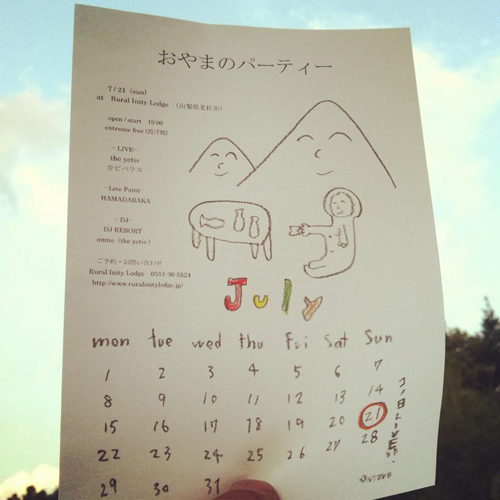 おやまのパーティー
7/21 (sun)
at Rural Inity Lodge (山梨県北杜市)
open / start 19:00
entrance free (投げ銭)
-LIVE-
the yetis
カピバラス
-Live Paint-
HAMADARAKA
-DJ-
DJ RESORT
anmo (the yetis)
ご予約・お問い合わせ
Rural Inity Lodge 0551-36-5524
http://www.ruralinitylodge.jp/
July
mon tue wed thu Fri Sat Sun
1 2 3 4 5 6 7
8 9 10 11 12 13 14
15 16 17 18 19 20 21
22 23 24 25 26 27 28
29 30 31